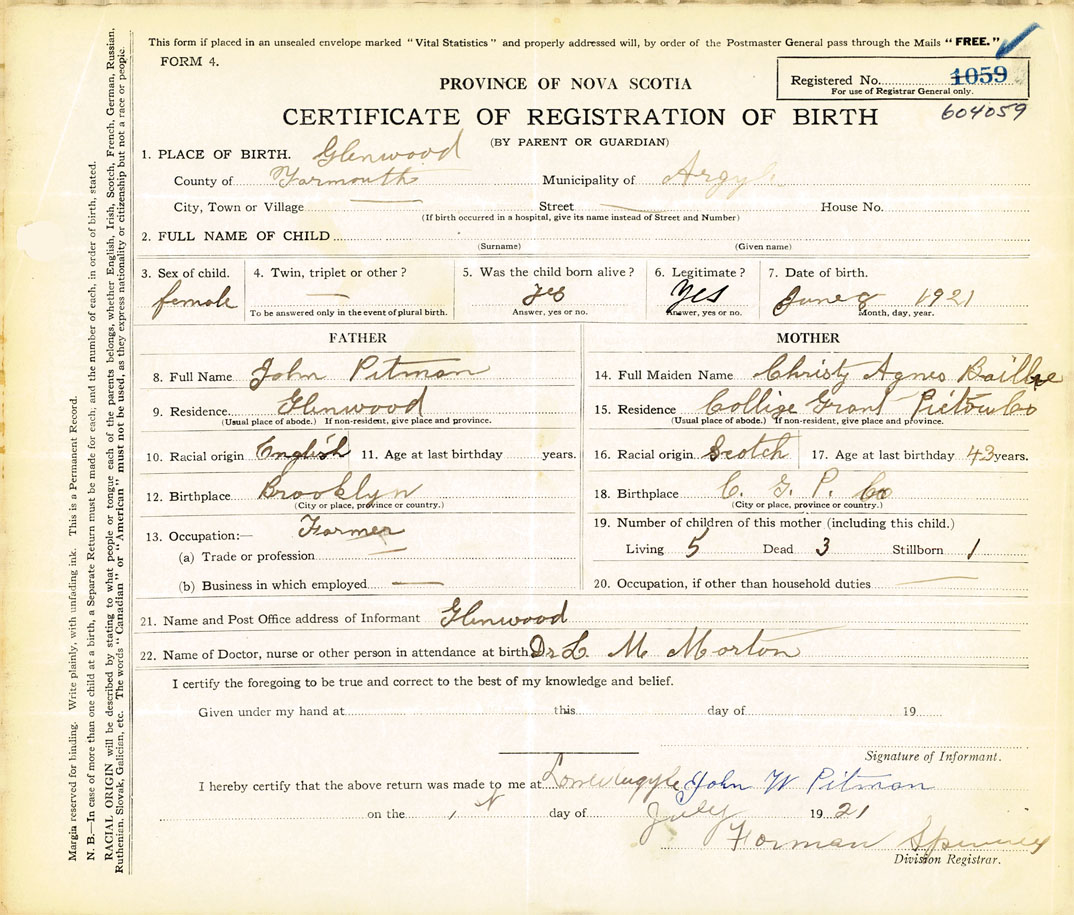 This form if placed in an unsealed envelope marked "Vital Statistics" and properly addressed will, by order of the Postmaster General pass through the Mails "FREE."
FORM 4.
PROVINCE OF NOVA SCOTIA
Registered No. 1059
For use of Registrar General only.
604059
CERTIFICATE OF REGISTRATION OF BIRTH
(BY PARENT OR GUARDIAN)
1. PLACE OF BIRTH. Glenwood
County of Yarmouth Municipality of Argyle
City, Town or Village Street House No.
(If birth occurred in a hospital, give its name instead of Street and Number)
2. FULL NAME OF CHILD
(Surname) (Given name)
3. Sex of child. 4. Twin, triplet or other? 5. Was the child born alive? 6. Legitimate? 7. Date of birth.
female — yes Yes June 8 1921
To be answered only in the event of plural birth. Answer, yes or no. Answer, yes or no. Month, day, year.
FATHER MOTHER
8. Full Name John Pitman 14. Full Maiden Name Christy Agnes Baillie
9. Residence. Glenwood 15. Residence Collige Grant Pictou Co
(Usual place of abode.) If non-resident, give place and province. (Usual place of abode.) If non-resident, give place and province.
10. Racial origin English 11. Age at last birthday years. 16. Racial origin Scotch 17. Age at last birthday 43 years.
12. Birthplace Brooklyn 18. Birthplace C. G. P. Co
(City or place, province or country.) (City or place, province or country.)
13. Occupation:— Farmer 19. Number of children of this mother (including this child.)
(a) Trade or profession Living 5 Dead 3 Stillborn 1
(b) Business in which employed — 20. Occupation, if other than household duties —
21. Name and Post Office address of Informant Glenwood
22. Name of Doctor, nurse or other person in attendance at birth Dr L. M. Morton
I certify the foregoing to be true and correct to the best of my knowledge and belief.
Given under my hand at this day of 19
Signature of Informant.
I hereby certify that the above return was made to me at John W Pitman
on the 1st day of July 1921
Forman Spinney
Division Registrar.
Margin reserved for binding. Write plainly, with unfading ink. This is a Permanent Record.
N. B.—In case of more than one child at a birth, a Separate Return must be made for each, and the number of each, in order of birth, stated.
RACIAL ORIGIN will be described by stating to what people or tongue each of the parents belongs, whether English, Irish, Scotch, French, German, Russian,
Ruthenian, Slovak, Galician, etc. The words "Canadian" or "American" must not be used, as they express nationality or citizenship but not a race or people.